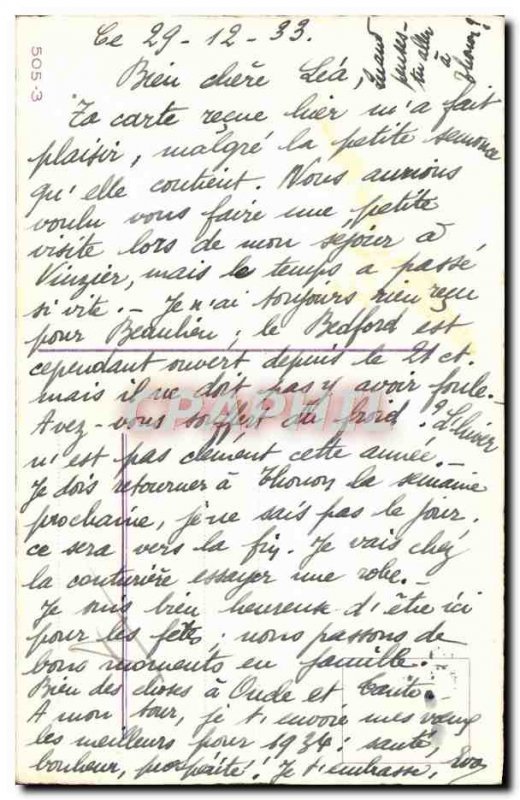 505-3
Ce 29-12-33.
Quand
penses-
tu aller
à
Thonon?
Bien chère Léa,
Ta carte reçue hier m'a fait
plaisir, malgré la petite semonce
qu'elle contient. Nous aurions
voulu vous faire une petite
visite lors de mon séjour à
Vinzier, mais le temps a passé
si vite. - Je n'ai toujours rien reçu
pour Beaulieu; le Bedford est
cependant ouvert depuis le 21 ct.
mais il ne doit pas y avoir foule. -
Avez-vous souffert du froid? L'hiver
n'est pas clément cette année. -
Je dois retourner à Thonon la semaine
prochaine, je ne sais pas le jour,
ce sera vers la fin. Je vais chez
la couturière essayer une robe. -
Je suis bien heureuse d'être ici
pour les fêtes; nous passons de
bons moments en famille.
Bien des choses à Oncle et
A mon tour, je t'envoie mes vœux
les meilleurs pour 1934: santé,
bonheur, prospérité! Je t'embrasse, Eva
CPAPHIL